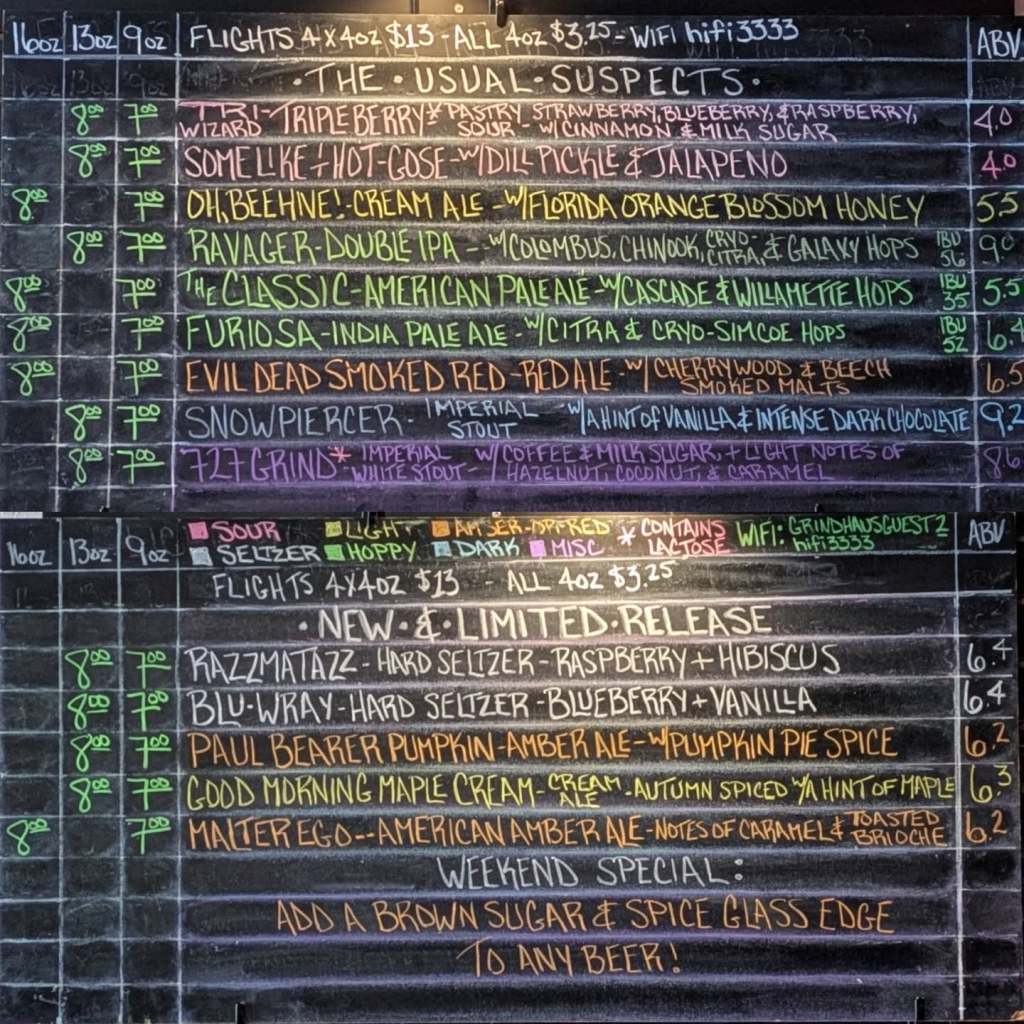 16oz 13oz 9oz FLIGHTS 4x4oz $13 - ALL 4oz $3.25 - WIFI hifi3333 ABV
· THE · USUAL · SUSPECTS ·
8.00 7.00 TRI-WIZARD TRIPLEBERRY* PASTRY SOUR - STRAWBERRY, BLUEBERRY, & RASPBERRY, W/ CINNAMON & MILK SUGAR 4.0
8.00 7.00 SOME LIKE + HOT - GOSE - W/ DILL PICKLE & JALAPENO 4.0
8.00 7.00 OH, BEEHNE! - CREAM ALE - W/ FLORIDA ORANGE BLOSSOM HONEY 5.5
8.00 7.00 RAVAGER - DOUBLE IPA - W/ COLOMBUS, CHINOOK, CRYO-CITRA, & GALAXY HOPS IBU 56 9.0
8.00 7.00 THE CLASSIC - AMERICAN PALE ALE - W/ CASCADE & WILLAMETTE HOPS IBU 35 5.5
8.00 7.00 FURIOSA - INDIA PALE ALE - W/ CITRA & CRYO-SIMCOE HOPS IBU 52 6.4
8.00 7.00 EVIL DEAD SMOKED RED - RED ALE - W/ CHERRYWOOD & BEECH SMOKED MALTS 6.5
8.00 7.00 SNOWPIERCER - IMPERIAL STOUT W/ A HINT OF VANILLA & INTENSE DARK CHOCOLATE 9.2
8.00 7.00 727 GRIND* IMPERIAL WHITE STOUT - W/ COFFEE & MILK SUGAR, + LIGHT NOTES OF HAZELNUT, COCONUT, & CARAMEL 8.6
16oz 13oz 9oz SOUR LIGHT AMBER-RED * CONTAINS LACTOSE WIFI: GRINDHAUSGUEST2 hifi3333 ABV
SELTZER HOPPY DARK MISC
FLIGHTS 4x4oz $13 - ALL 4oz $3.25
· NEW · & · LIMITED · RELEASE
8.00 7.00 RAZZMATAZZ - HARD SELTZER - RASPBERRY + HIBISCUS 6.4
8.00 7.00 BLU-WRAY - HARD SELTZER - BLUEBERRY + VANILLA 6.4
8.00 7.00 PAUL BEARER PUMPKIN - AMBER ALE - W/ PUMPKIN PIE SPICE 6.2
8.00 7.00 GOOD MORNING MAPLE CREAM - CREAM ALE - AUTUMN SPICED W/ A HINT OF MAPLE 6.3
8.00 7.00 MALTER EGO -- AMERICAN AMBER ALE - NOTES OF CARAMEL & TOASTED BRIOCHE 6.2
WEEKEND SPECIAL:
ADD A BROWN SUGAR & SPICE GLASS EDGE
TO ANY BEER!